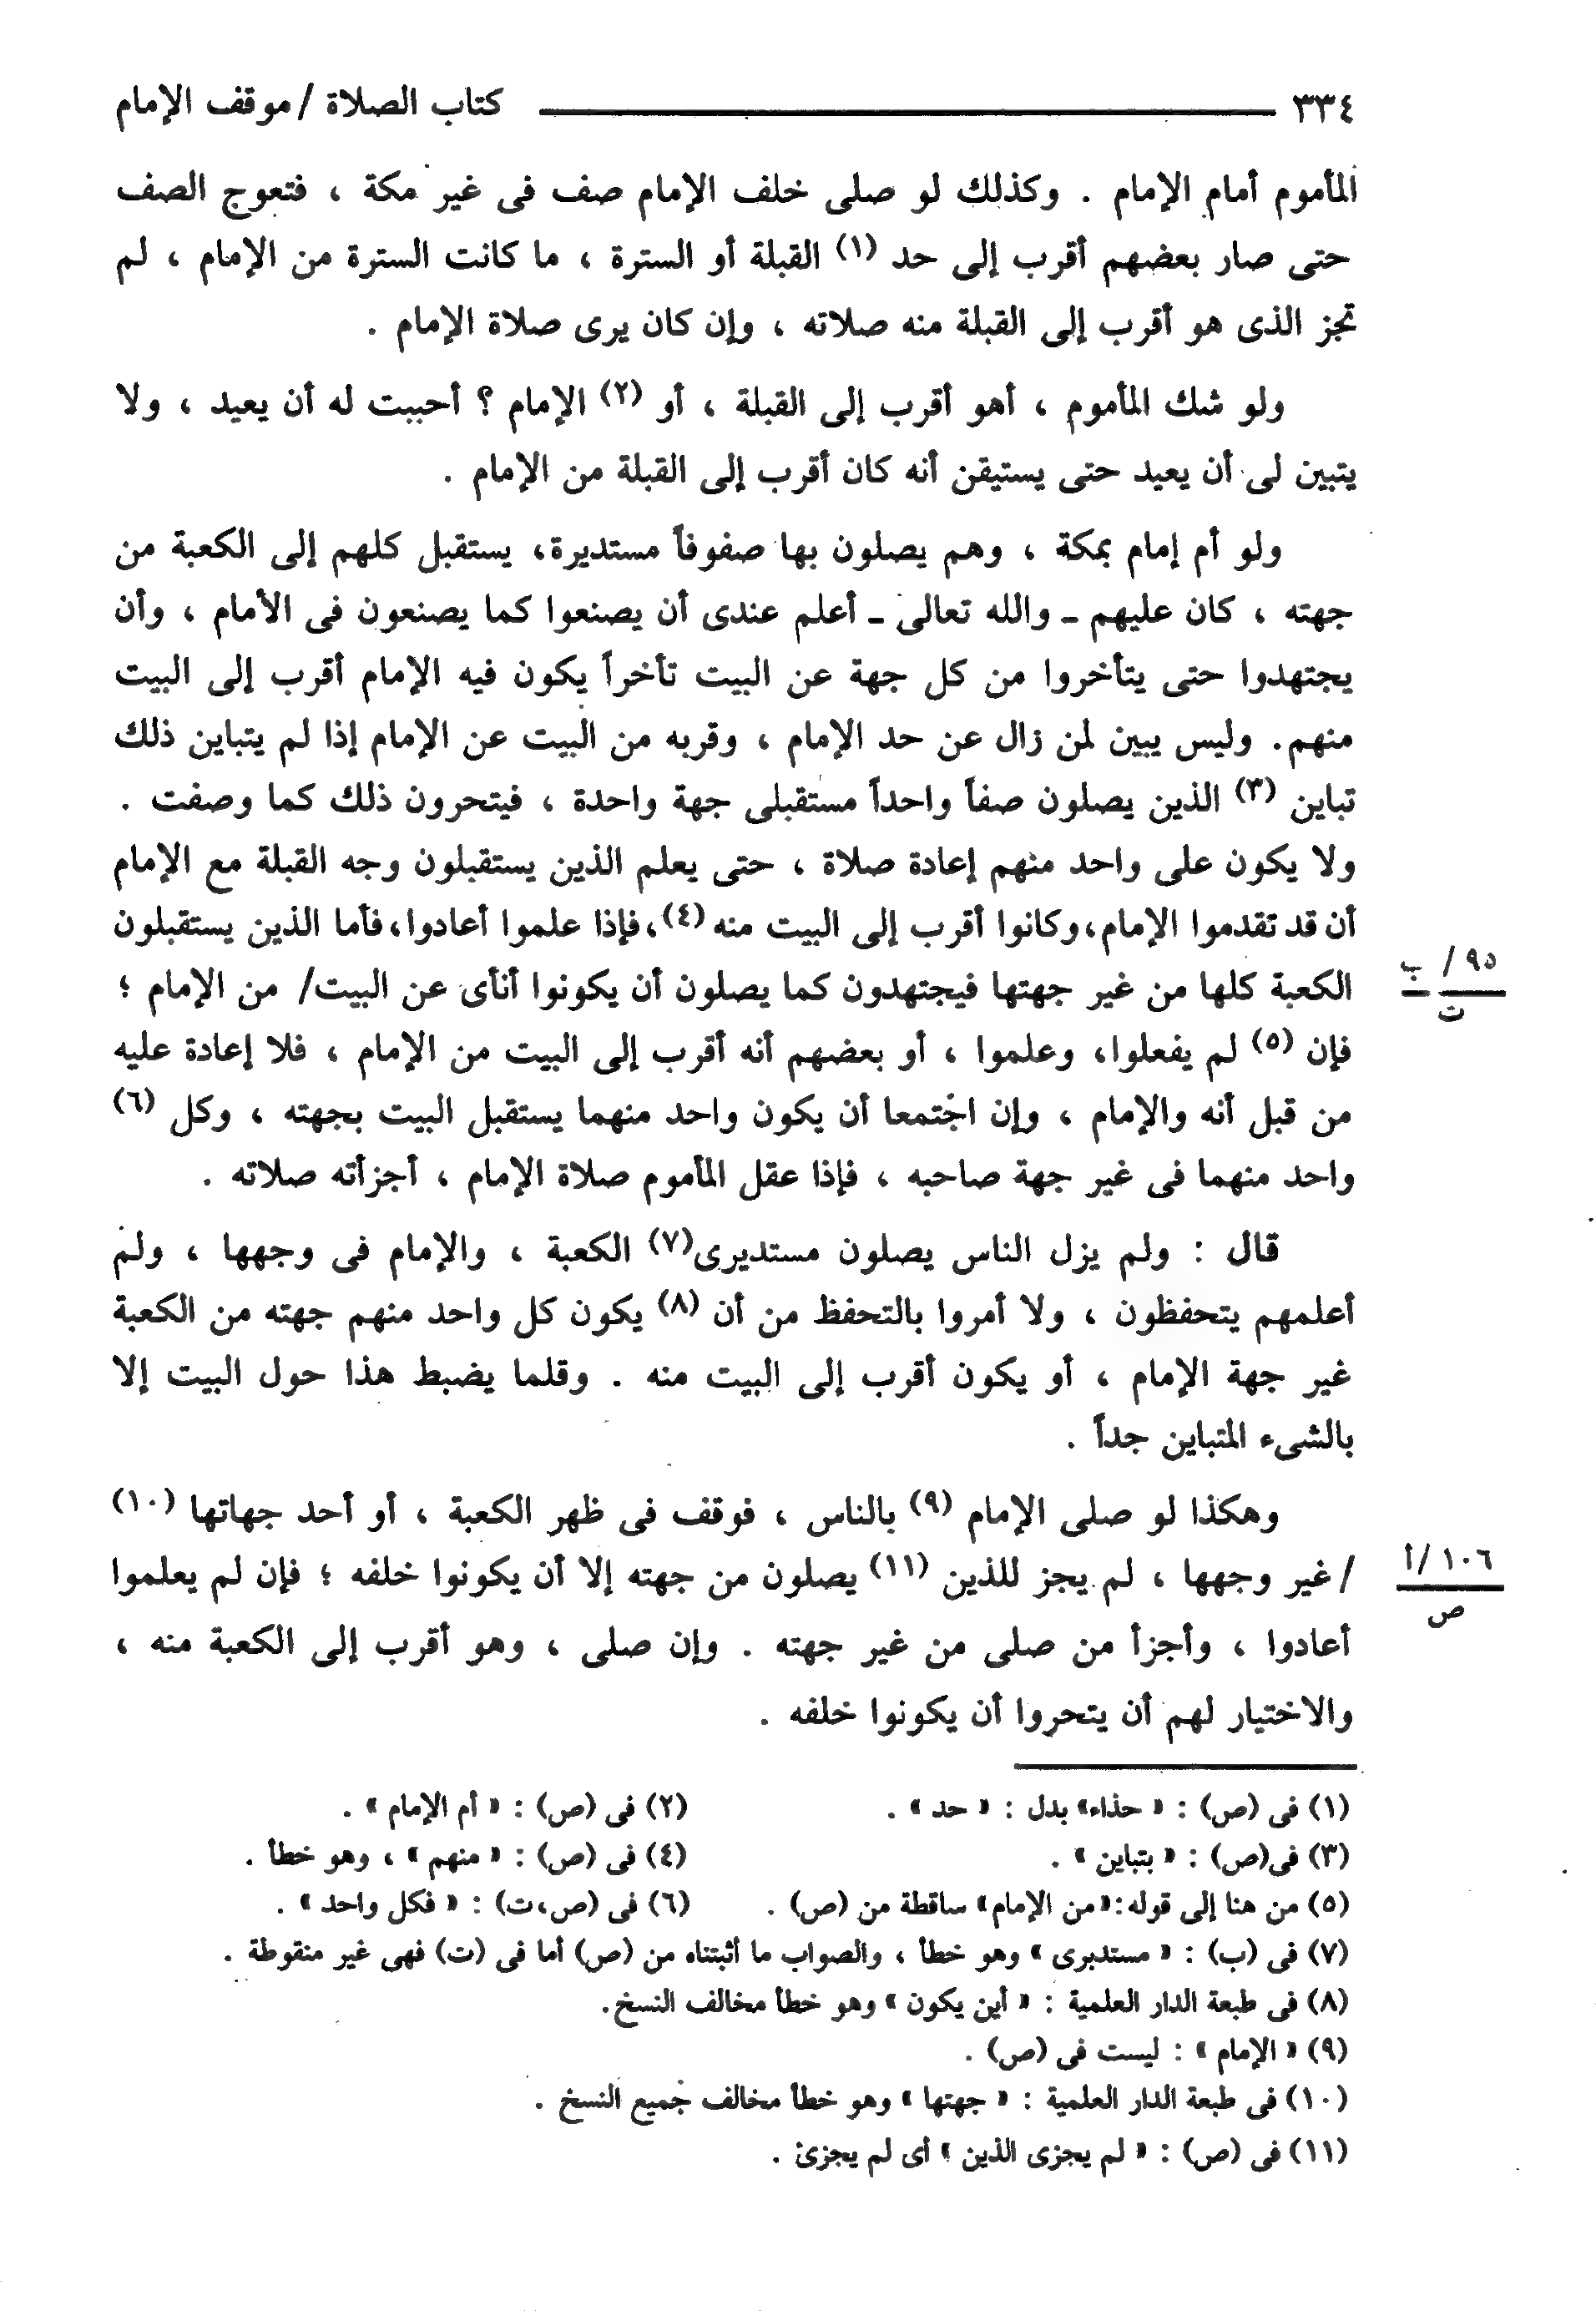 ٣٣٤ كتاب الصلاة / موقف الإمام
المأموم أمام الإمام . وكذلك لو صلى خلف الإمام صف فى غير مكة ، فتعوج الصف
حتى صار بعضهم أقرب إلى حد (١) القبلة أو السترة ، ما كانت السترة من الإمام ، لم
تجز الذى هو أقرب إلى القبلة منه صلاته ، وإن كان يرى صلاة الإمام .
ولو شك المأموم ، أهو أقرب إلى القبلة ، أو (٢) الإمام ؟ أحببت له أن يعيد ، ولا
يتبين لى أن يعيد حتى يستيقن أنه كان أقرب إلى القبلة من الإمام .
ولو أم إمام بمكة ، وهم يصلون بها صفوفاً مستديرة، يستقبل كلهم إلى الكعبة من
جهته ، كان عليهم ـ والله تعالى ـ أعلم عندى أن يصنعوا كما يصنعون فى الأمام ، وأن
يجتهدوا حتى يتأخروا من كل جهة عن البيت تأخراً يكون فيه الإمام أقرب إلى البيت
منهم. وليس يبين لمن زال عن حد الإمام ، وقربه من البيت عن الإمام إذا لم يتباين ذلك
تباين (٣) الذين يصلون صفاً واحداً مستقبلى جهة واحدة ، فيتحرون ذلك كما وصفت .
ولا يكون على واحد منهم إعادة صلاة ، حتى يعلم الذين يستقبلون وجه القبلة مع الإمام
أن قد تقدموا الإمام، وكانوا أقرب إلى البيت منه (٤)، فإذا علموا أعادوا، فأما الذين يستقبلون
الكعبة كلها من غير جهتها فيجتهدون كما يصلون أن يكونوا أنأى عن البيت/ من الإمام ؛
٩٥ / ب
ت
فإن (٥) لم يفعلوا، وعلموا ، أو بعضهم أنه أقرب إلى البيت من الإمام ، فلا إعادة عليه
من قبل أنه والإمام ، وإن اجتمعا أن يكون واحد منهما يستقبل البيت بجهته ، وكل (٦)
واحد منهما فى غير جهة صاحبه ، فإذا عقل المأموم صلاة الإمام ، أجزأته صلاته .
قال : ولم يزل الناس يصلون مستديرى(٧) الكعبة ، والإمام فى وجهها ، ولم
أعلمهم يتحفظون ، ولا أمروا بالتحفظ من أن (٨) يكون كل واحد منهم جهته من الكعبة
غير جهة الإمام ، أو يكون أقرب إلى البيت منه . وقلما يضبط هذا حول البيت إلا
بالشىء المتباين جداً .
وهكذا لو صلى الإمام (٩) بالناس ، فوقف فى ظهر الكعبة ، أو أحد جهاتها (١٠)
/ غير وجهها ، لم يجز للذين (١١) يصلون من جهته إلا أن يكونوا خلفه ؛ فإن لم يعلموا
١٠٦ /أ
ص
أعادوا ، وأجزأ من صلى من غير جهته . وإن صلى ، وهو أقرب إلى الكعبة منه ،
والاختيار لهم أن يتحروا أن يكونوا خلفه .
(١) فى (ص) : « حذاء» بدل : « حد » . (٢) فى (ص) : « أم الإمام » .
(٣) فى(ص) : « بتباين » . (٤) فى (ص) : « منهم » ، وهو خطأ .
(٥) من هنا إلى قوله:«من الإمام» ساقطة من (ص) . (٦) فى (ص،ت) : « فكل واحد » .
(٧) فى (ب) : « مستدبرى » وهو خطأ ، والصواب ما أثبتناه من (ص) أما فى (ت) فهى غير منقوطة .
(٨) فى طبعة الدار العلمية : « أين يكون » وهو خطأ مخالف النسخ.
(٩) « الإمام » : ليست فى (ص) .
(١٠) فى طبعة الدار العلمية : « جهتها » وهو خطأ مخالف جميع النسخ .
(١١) فى (ص) : « لم يجزى الذين » أى لم يجزئ .